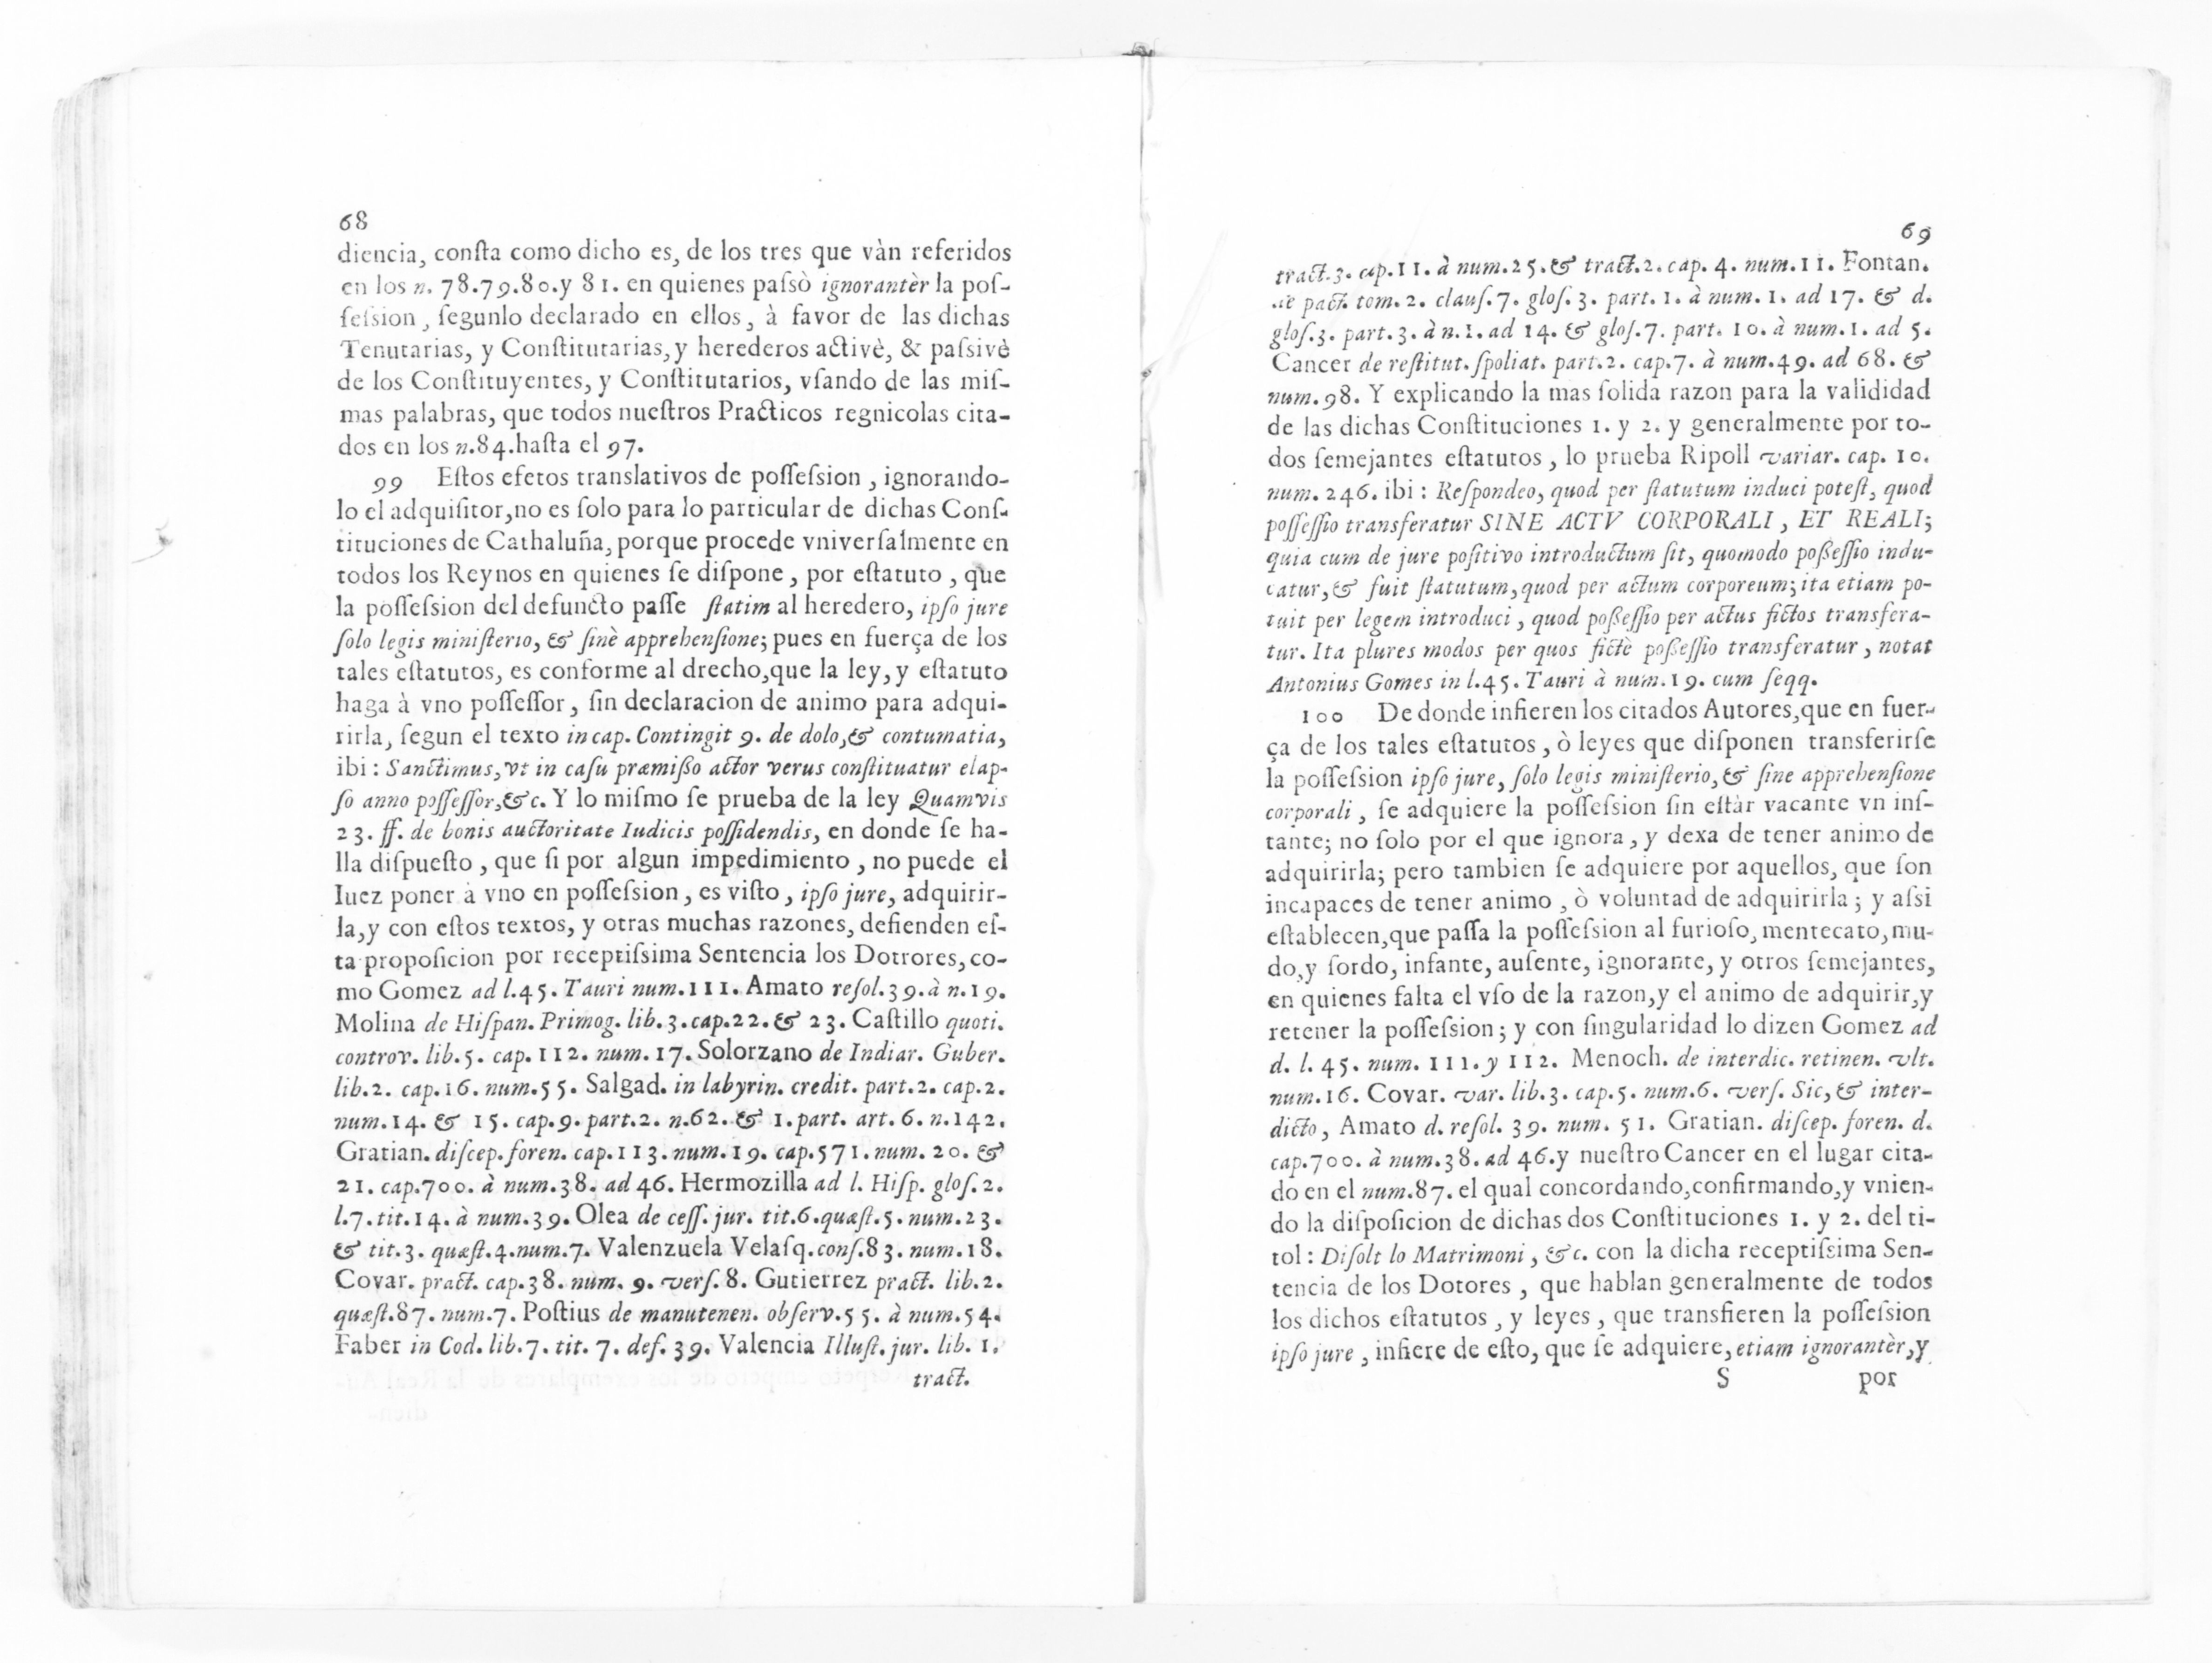 68
diencia, conſta como dicho es, de los tres que vàn referidos
en los n. 78.79.80.y 81. en quienes paſsò ignorantèr la poſ-
ſeſsion, ſegunlo declarado en ellos, à favor de las dichas
Tenutarias, y Conſtitutarias, y herederos activè, & paſsivè
de los Conſtituyentes, y Conſtitutarios, vſando de las miſ-
mas palabras, que todos nueſtros Practicos regnicolas cita-
dos en los n.84.haſta el 97.
99 Eſtos efetos translativos de poſſeſsion, ignorando-
lo el adquiſitor,no es ſolo para lo particular de dichas Conſ-
tituciones de Cathaluña, porque procede vniverſalmente en
todos los Reynos en quienes ſe diſpone, por eſtatuto, que
la poſſeſsion del defuncto paſſe ſtatim al heredero, ipſo jure
ſolo legis miniſterio, & ſinè apprehenſione; pues en fuerça de los
tales eſtatutos, es conforme al drecho,que la ley, y eſtatuto
haga à vno poſſeſſor, ſin declaracion de animo para adqui-
rirla, ſegun el texto in cap. Contingit 9. de dolo,& contumatia,
ibi: Sanctimus, vt in caſu præmißo actor verus conſtituatur elap-
ſo anno poſſeſſor,&c. Y lo miſmo ſe prueba de la ley Quamvis
23. ff. de bonis auctoritate Iudicis poſſidendis, en donde ſe ha-
lla diſpueſto, que ſi por algun impedimiento, no puede el
Iuez poner à vno en poſſeſsion, es viſto, ipſo jure, adquirir-
la,y con eſtos textos, y otras muchas razones, defienden eſ-
ta propoſicion por receptiſsima Sentencia los Dotrores, co-
mo Gomez ad l.45. Tauri num.111. Amato reſol.39.à n.19.
Molina de Hiſpan. Primog. lib.3.cap.22.& 23. Caſtillo quoti.
controv. lib.5. cap. 112. num. 17. Solorzano de Indiar. Guber.
lib.2. cap.16. num.55. Salgad. in labyrin. credit. part.2. cap.2.
num.14. & 15. cap.9. part.2. n.62. & 1.part. art. 6. n.142.
Gratian. diſcep.foren. cap.113.num.19. cap.571.num. 20. &
21. cap.700. à num.38. ad 46. Hermozilla ad l. Hiſp. gloſ.2.
l.7.tit.14. à num.39. Olea de ceſſ. jur. tit.6.quæſt.5.num.23.
& tit.3. quæſt.4.num.7. Valenzuela Velaſq.conſ.83. num.18.
Covar. pract. cap.38. num. 9. verſ. 8. Gutierrez pract. lib.2.
quæſt.87. num.7. Poſtius de manutenen. obſerv.55. à num.54.
Faber in Cod. lib.7. tit. 7. def. 39. Valencia Illuſt. jur. lib. 1.
tract.
69
tract.3. cap.11. à num.25.& tract.2. cap. 4. num.11. Fontan.
de pact. tom. 2. clauſ.7. gloſ. 3. part. 1. à num. 1. ad 17. & d.
gloſ.3. part.3. à n.1. ad 14. & gloſ.7. part. 10. à num.1. ad 5.
Cancer de reſtitut. ſpoliat. part.2. cap.7. à num.49. ad 68. &
num.98. Y explicando la mas ſolida razon para la valididad
de las dichas Conſtituciones 1. y 2. y generalmente por to-
dos ſemejantes eſtatutos, lo prueba Ripoll variar. cap. 10.
num. 246. ibi: Reſpondeo, quod per ſtatutum induci poteſt, quod
poſſeſſio transferatur SINE ACTV CORPORALI, ET REALI;
quia cum de jure poſitivo introductum ſit, quomodo poßeſſio indu-
catur,& fuit ſtatutum, quod per actum corporeum; ita etiam po-
tuit per legem introduci, quod poßeſſio per actus fictos transfera-
tur. Ita plures modos per quos fictè poßeſſio transferatur, notat
Antonius Gomes in l.45. Tauri à num.19. cum ſeqq.
100 De donde infieren los citados Autores,que en fuer-
ça de los tales eſtatutos, ò leyes que diſponen transferirſe
la poſſeſsion ipſo jure, ſolo legis miniſterio,& ſine apprehenſione
corporali, ſe adquiere la poſſeſsion ſin eſtàr vacante vn inſ-
tante; no ſolo por el que ignora, y dexa de tener animo de
adquirirla; pero tambien ſe adquiere por aquellos, que ſon
incapaces de tener animo, ò voluntad de adquirirla; y aſsi
eſtablecen,que paſſa la poſſeſsion al furioſo, mentecato, mu-
do,y ſordo, infante, auſente, ignorante, y otros ſemejantes,
en quienes falta el vſo de la razon,y el animo de adquirir,y
retener la poſſeſsion; y con ſingularidad lo dizen Gomez ad
d. l. 45. num. 111. y 112. Menoch. de interdic. retinen. vlt.
num.16. Covar. var. lib.3. cap.5. num.6. verſ. Sic, & inter-
dicto, Amato d. reſol. 39. num. 51. Gratian. diſcep. foren. d.
cap.700. à num.38. ad 46.y nueſtro Cancer en el lugar cita-
do en el num.87. el qual concordando,confirmando,y vnien-
do la diſpoſicion de dichas dos Conſtituciones 1. y 2. del ti-
tol: Diſolt lo Matrimoni, &c. con la dicha receptiſsima Sen-
tencia de los Dotores, que hablan generalmente de todos
los dichos eſtatutos, y leyes, que transfieren la poſſeſsion
ipſo jure, infiere de eſto, que ſe adquiere, etiam ignorantèr,y
S por